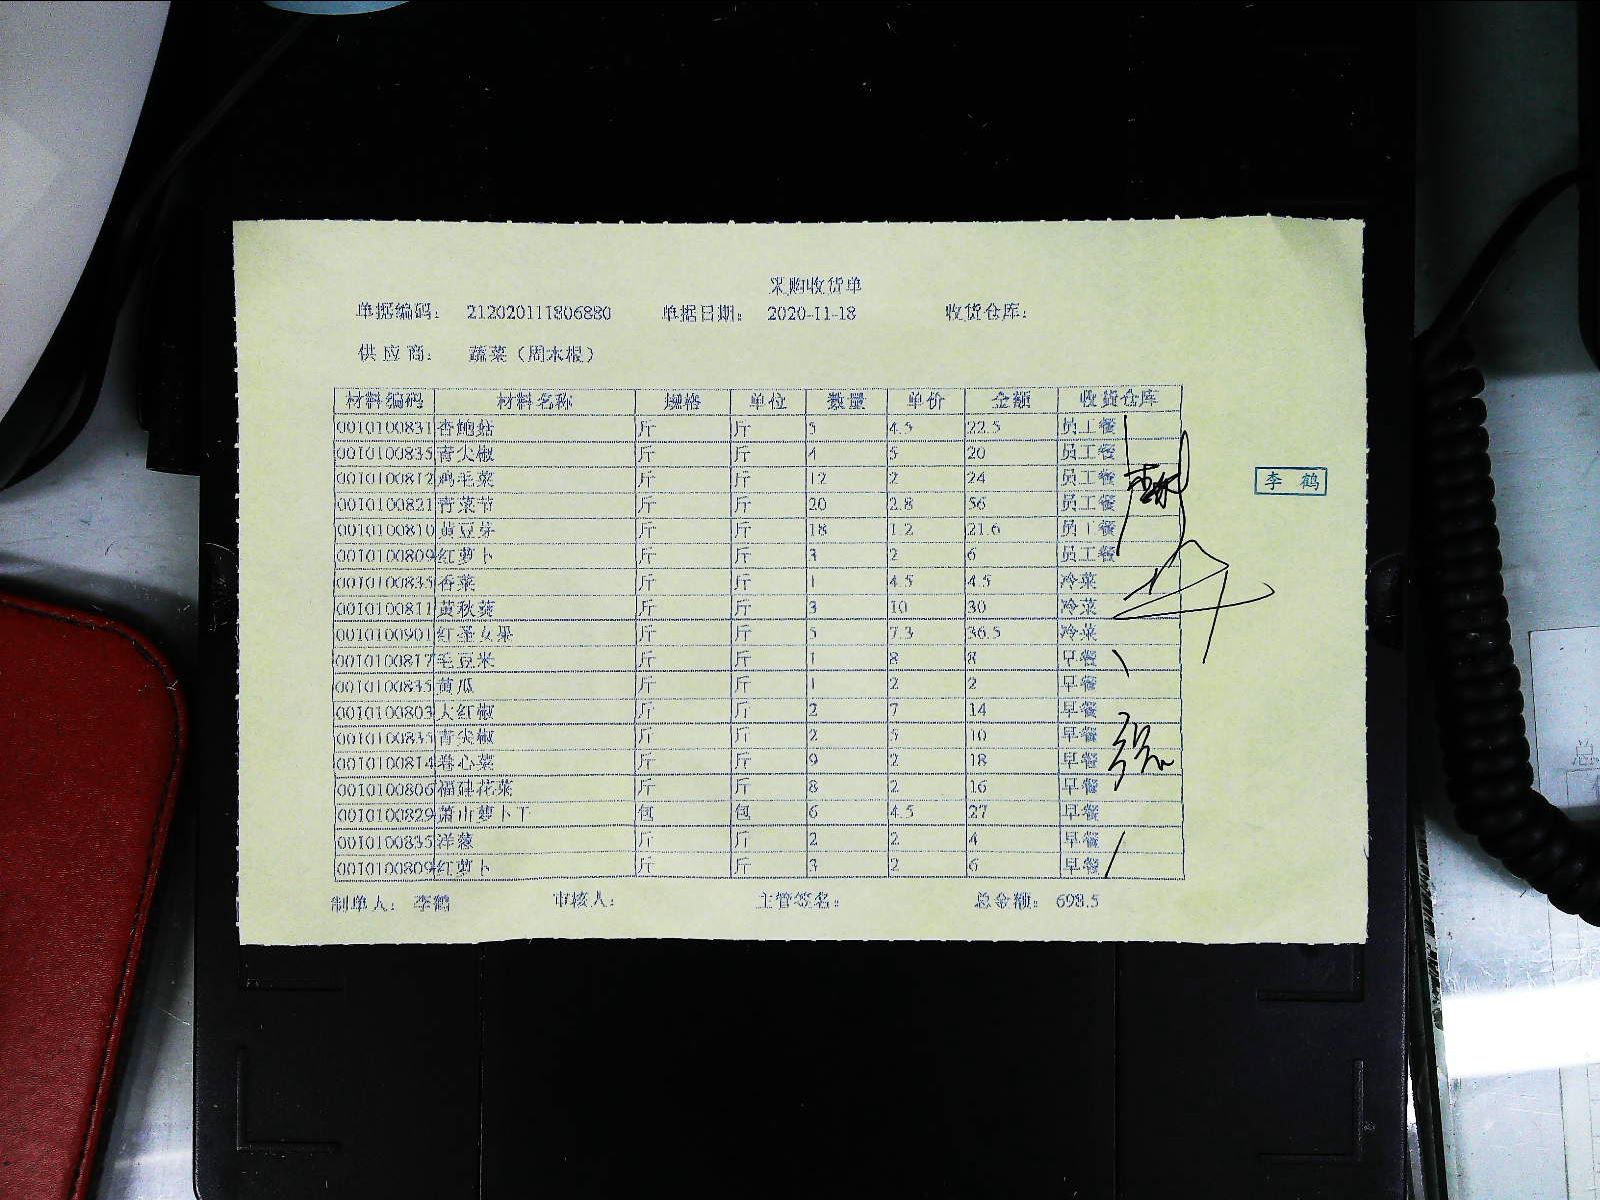 采购收货单
单据编码: 212020111806880 单据日期: 2020-11-18 收货仓库:
供应商: 蔬菜（周木根）
材料编码 材料名称 规格 单位 数量 单价 金额 收货仓库
0010100831 杏鲍菇 斤 斤 5 4.5 22.5 员工餐
0010100835 青尖椒 斤 斤 4 5 20 员工餐
0010100812 鸡毛菜 斤 斤 12 2 24 员工餐
0010100821 青菜节 斤 斤 20 2.8 56 员工餐
0010100810 黄豆芽 斤 斤 18 1.2 21.6 员工餐
0010100809 红萝卜 斤 斤 3 2 6 员工餐
0010100835 香菜 斤 斤 1 4.5 4.5 冷菜
0010100811 黄秋葵 斤 斤 3 10 30 冷菜
0010100901 红圣女果 斤 斤 5 7.3 36.5 冷菜
0010100817 毛豆米 斤 斤 1 8 8 早餐
0010100835 黄瓜 斤 斤 1 2 2 早餐
0010100803 大红椒 斤 斤 2 7 14 早餐
0010100835 青尖椒 斤 斤 2 5 10 早餐
0010100814 卷心菜 斤 斤 9 2 18 早餐
0010100806 福建花菜 斤 斤 8 2 16 早餐
0010100829 萧山萝卜干 包 包 6 4.5 27 早餐
0010100835 洋葱 斤 斤 2 2 4 早餐
0010100809 红萝卜 斤 斤 3 2 6 早餐
制单人: 李鹤 审核人: 主管签名: 总金额: 698.5
李 鹤